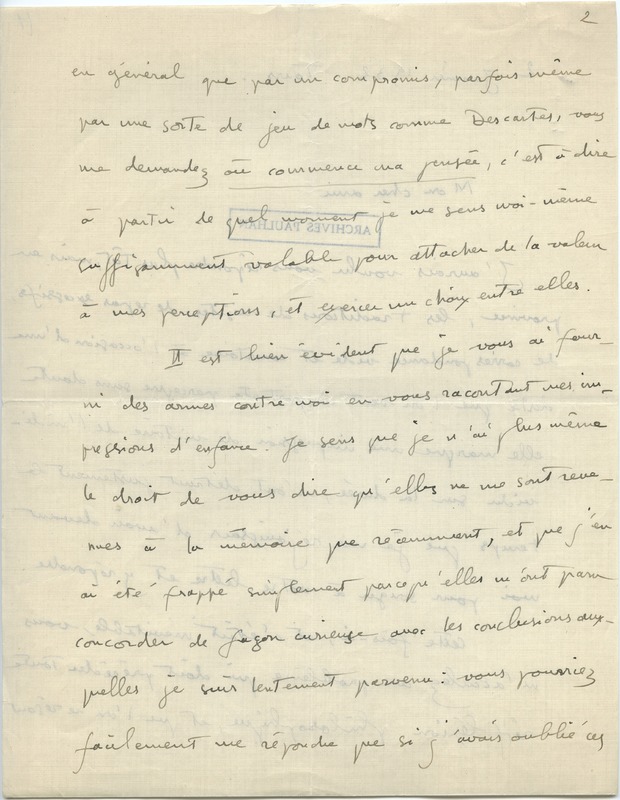 2
en général que par un compromis, parfois même
par une sorte de jeu de mots comme Descartes, vous
me demandez où commence ma pensée, c'est à dire
à partir de quel moment je me sens moi-même
ARCHIVES PAULHAN
suffisamment valable pour attacher de la valeur
à mes perceptions, et exercer un choix entre elles.
Il est bien évident que je vous ai four-
ni des armes contre moi en vous racontant mes im-
pressions d'enfance. Je sens que je n'ai plus même
le droit de vous dire qu'elles ne me sont reve-
nues à la mémoire que récemment, et que j'en
ai été frappé simplement parce qu'elles m'ont paru
concorder de façon curieuse avec les conclusions aux-
quelles je suis lentement parvenu : vous pourriez
facilement me répondre que si j'avais oublié ces